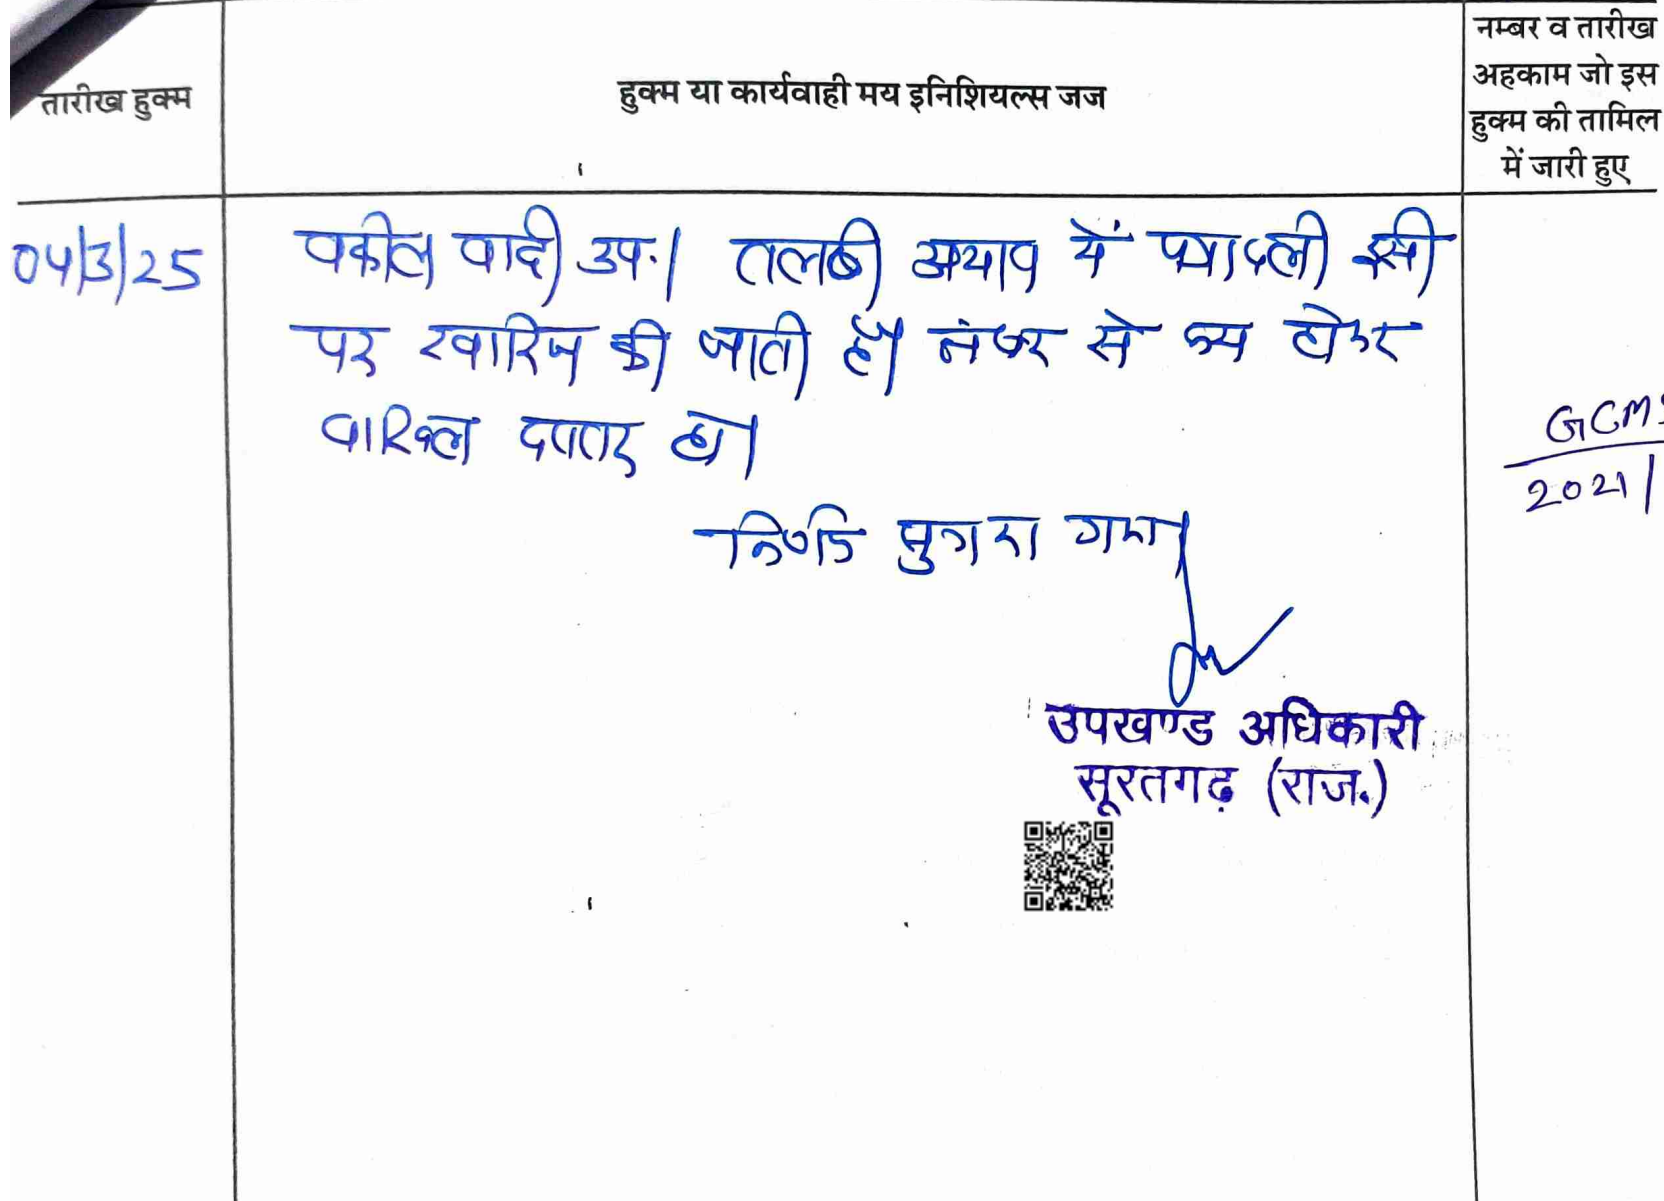 तारीख हुक्म
हुक्म या कार्यवाही मय इनिशियल्स जज
नम्बर व तारीख
अहकाम जो इस
हुक्म की तामिल
में जारी हुए
04/3/25
वकील वादी उप.। तलबी अभाव में पत्रावली इसी
पर खारिज की जाती है। नंबर से कम होकर
दाखिल दफ्तर हो।
निर्णय सुनाया गया।
GCMS
2021/
उपखण्ड अधिकारी
सूरतगढ़ (राज.)